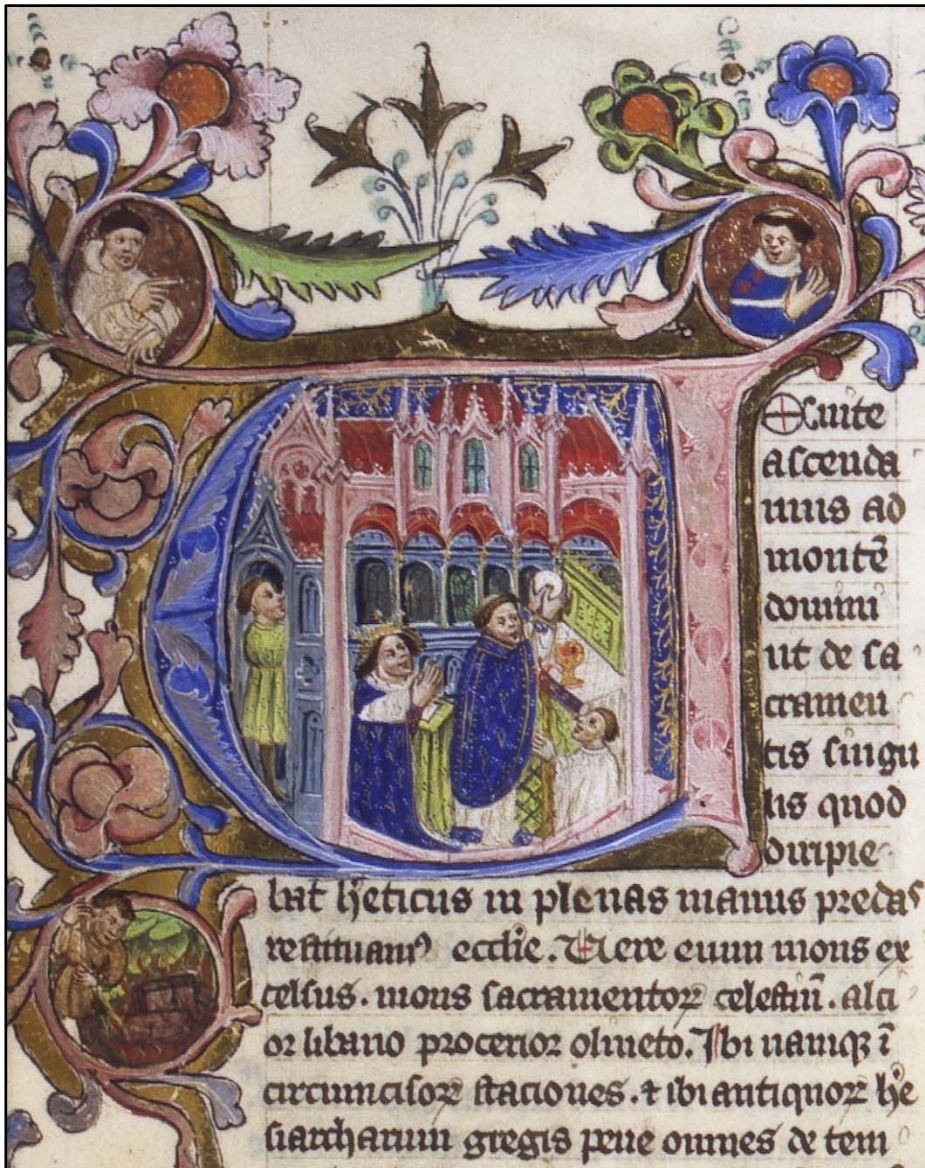 Enite
ascenda
mus ad
montē
domini
ut de sa
cramen
tis singu
lis quod
diripie
bat h̓eticus in plenas manus predas
restituamꝰ ecclīe. Uere enim mons ex
celsus. mons sacramentoꝝ celestiū. alci
or libano procerior oliueto. Ibi namqꝫ ī
circumcisoꝝ staciones. ⁊ ibi antiquoꝝ h̓e
siarcharum gregis pene omnes de tem